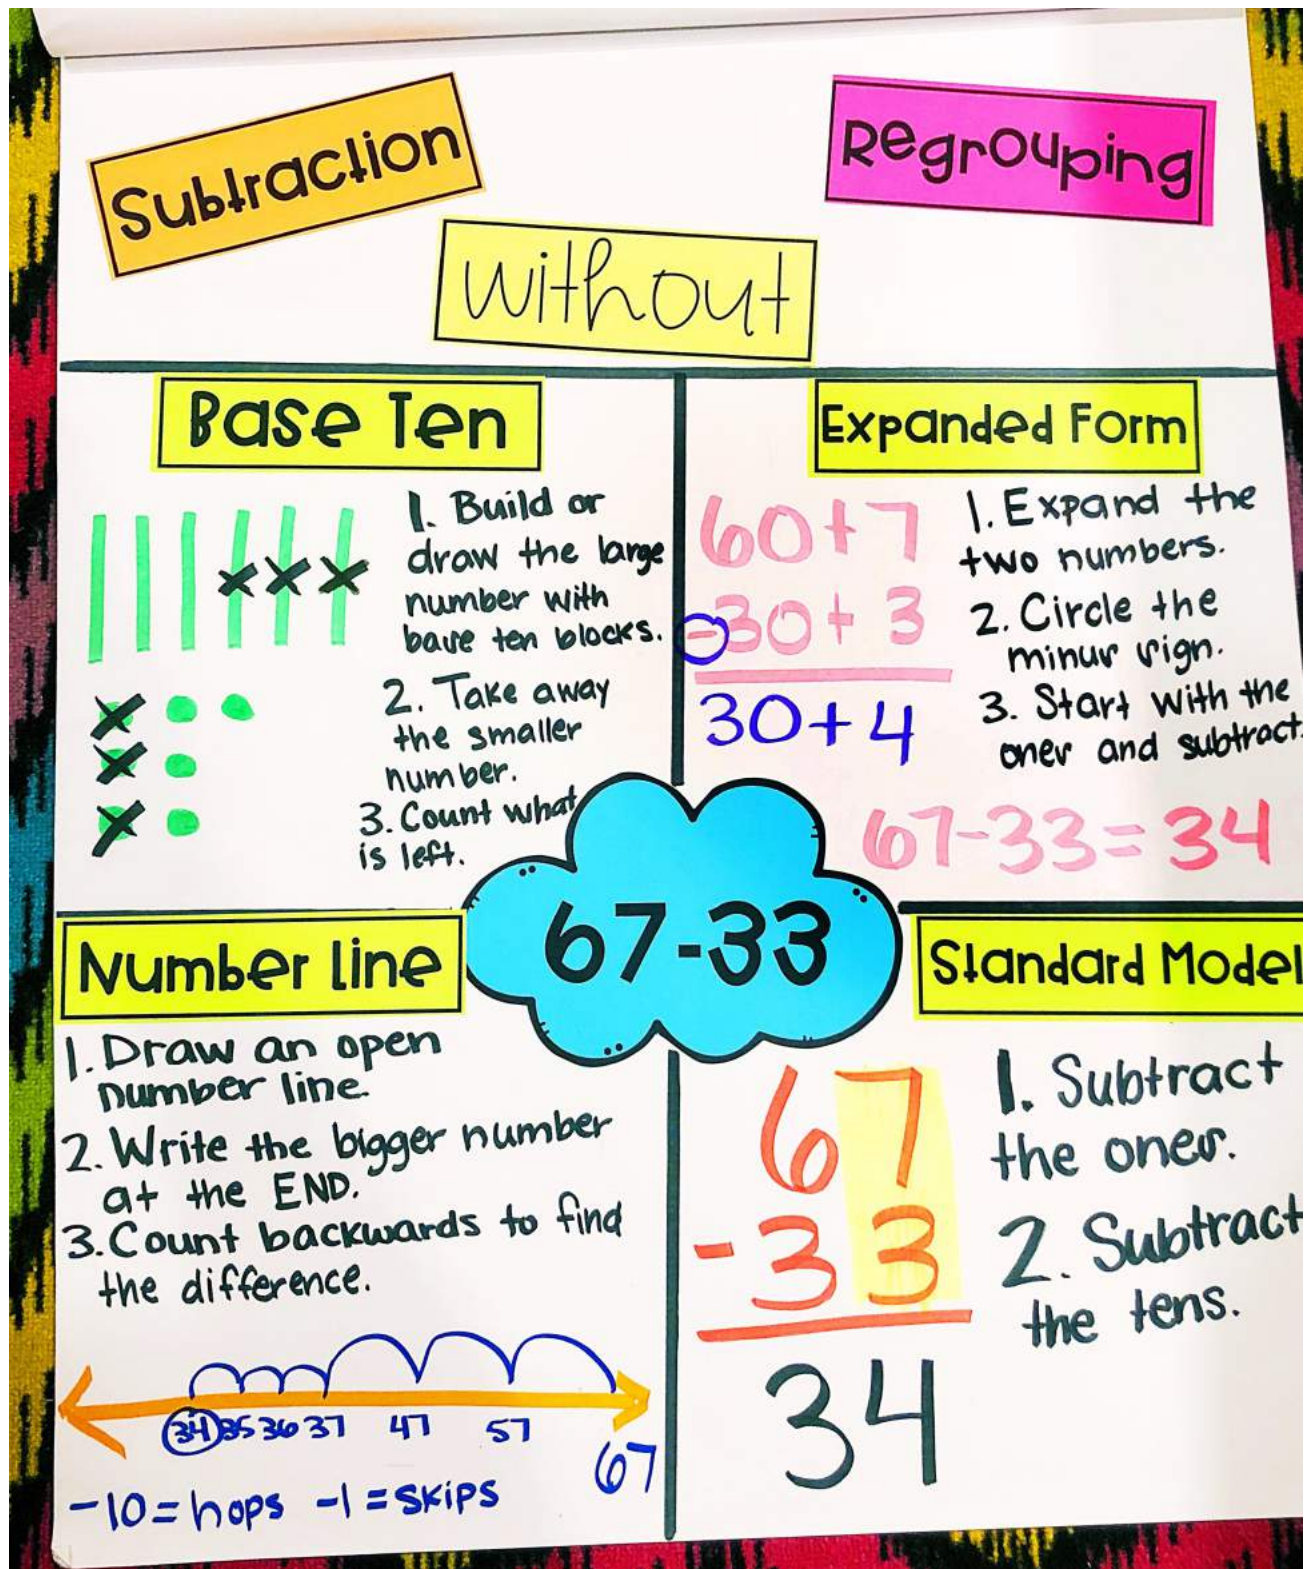 Subtraction
Regrouping
without
Base Ten
1. Build or
draw the large
number with
base ten blocks.
2. Take away
the smaller
number.
3. Count what
is left.
Expanded Form
60+7
-30+3
30+4
1. Expand the
two numbers.
2. Circle the
minus sign.
3. Start with the
ones and subtract.
67-33=34
67-33
Number line
1. Draw an open
number line.
2. Write the bigger number
at the END.
3. Count backwards to find
the difference.
34 35 36 37 47 57 67
-10=hops -1=skips
Standard Model
67
-33
34
1. Subtract
the ones.
2. Subtract
the tens.